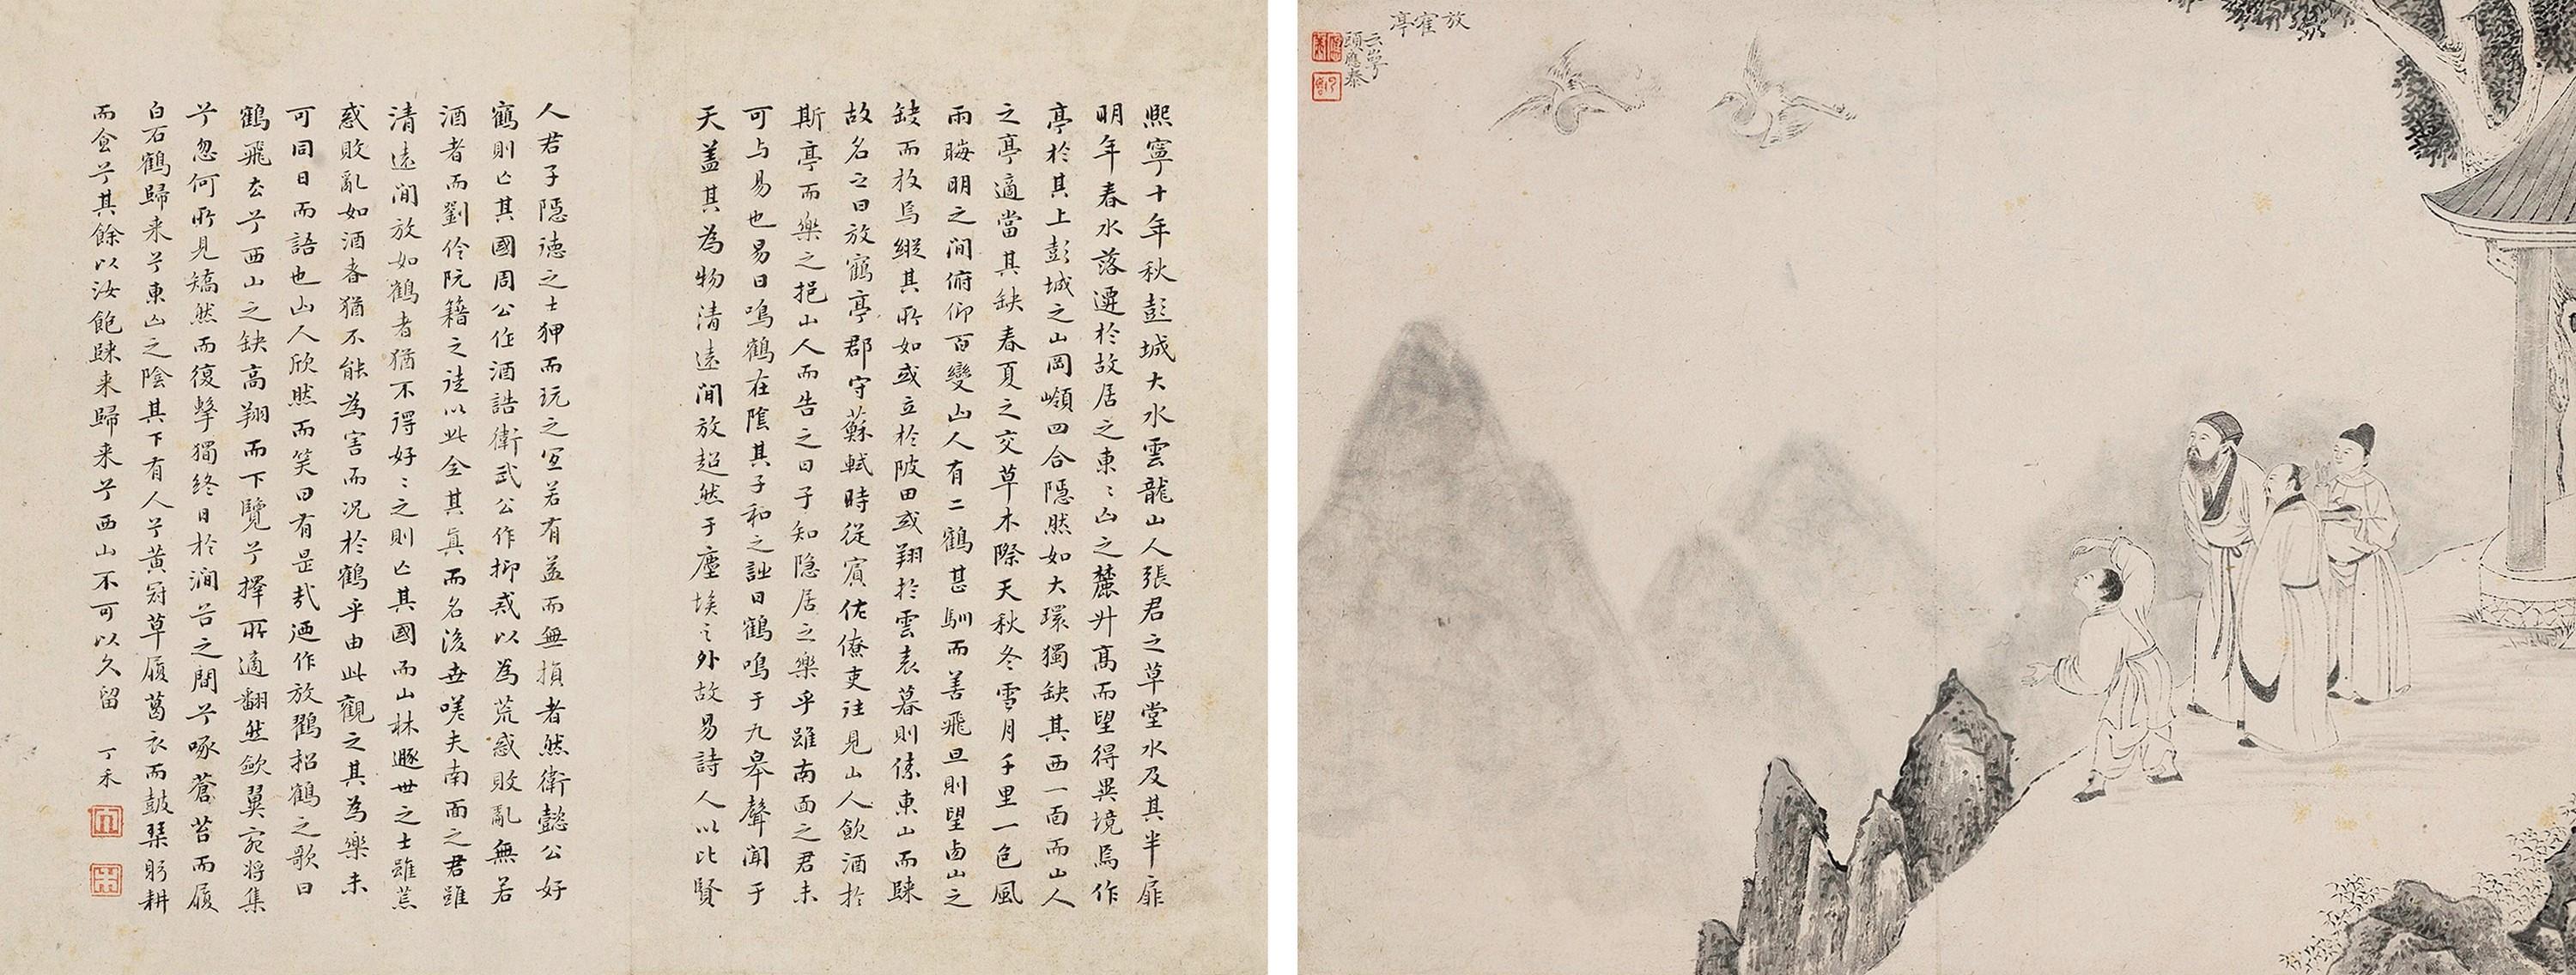 放隺亭
頋應泰
熙寧十年秋彭城大水雲龍山人張君之草堂水及其半扉
明年春水落遷於故居之東〻山之麓升高而望得異境焉作
亭於其上彭城之山岡嶺四合隱然如大環獨缺其西一面而山人
之亭適當其缺春夏之交草木際天秋冬雪月千里一色風
雨晦明之間俯仰百變山人有二鶴甚馴而善飛旦則望西山之
缺而放焉縱其所如或立於陂田或翔於雲表暮則傃東山而歸
故名之曰放鶴亭郡守蘇軾時從賓佐僚吏往見山人飲酒於
斯亭而樂之挹山人而告之曰子知隱居之樂乎雖南面之君未
可与易也易曰鳴鶴在陰其子和之詩曰鶴鳴于九皋聲聞于
天盖其為物清遠閒放超然于塵埃之外故易詩人以比賢
人君子隱德之士狎而玩之宜若有益而無損者然衛懿公好
鶴則亡其國周公作酒誥衛武公作抑戒以為荒惑敗亂無若
酒者而劉伶阮籍之徒以此全其真而名後世嗟夫南面之君雖
清遠閒放如鶴者猶不得好〻之則亡其國而山林遯世之士雖荒
惑敗亂如酒者猶不能為害而况於鶴乎由此觀之其為樂未
可同日而語也山人欣然而笑曰有是哉迺作放鶴招鶴之歌曰
鶴飛去兮西山之缺高翔而下覽兮擇所適翻然歛翼宛將集
兮忽何所見矯然而復擊獨終日於澗谷之間兮啄蒼苔而履
白石鶴歸来兮東山之陰其下有人兮黄冠草履葛衣而鼓琹躬耕
而食兮其餘以汝飽歸来歸来兮西山不可以久留 丁禾